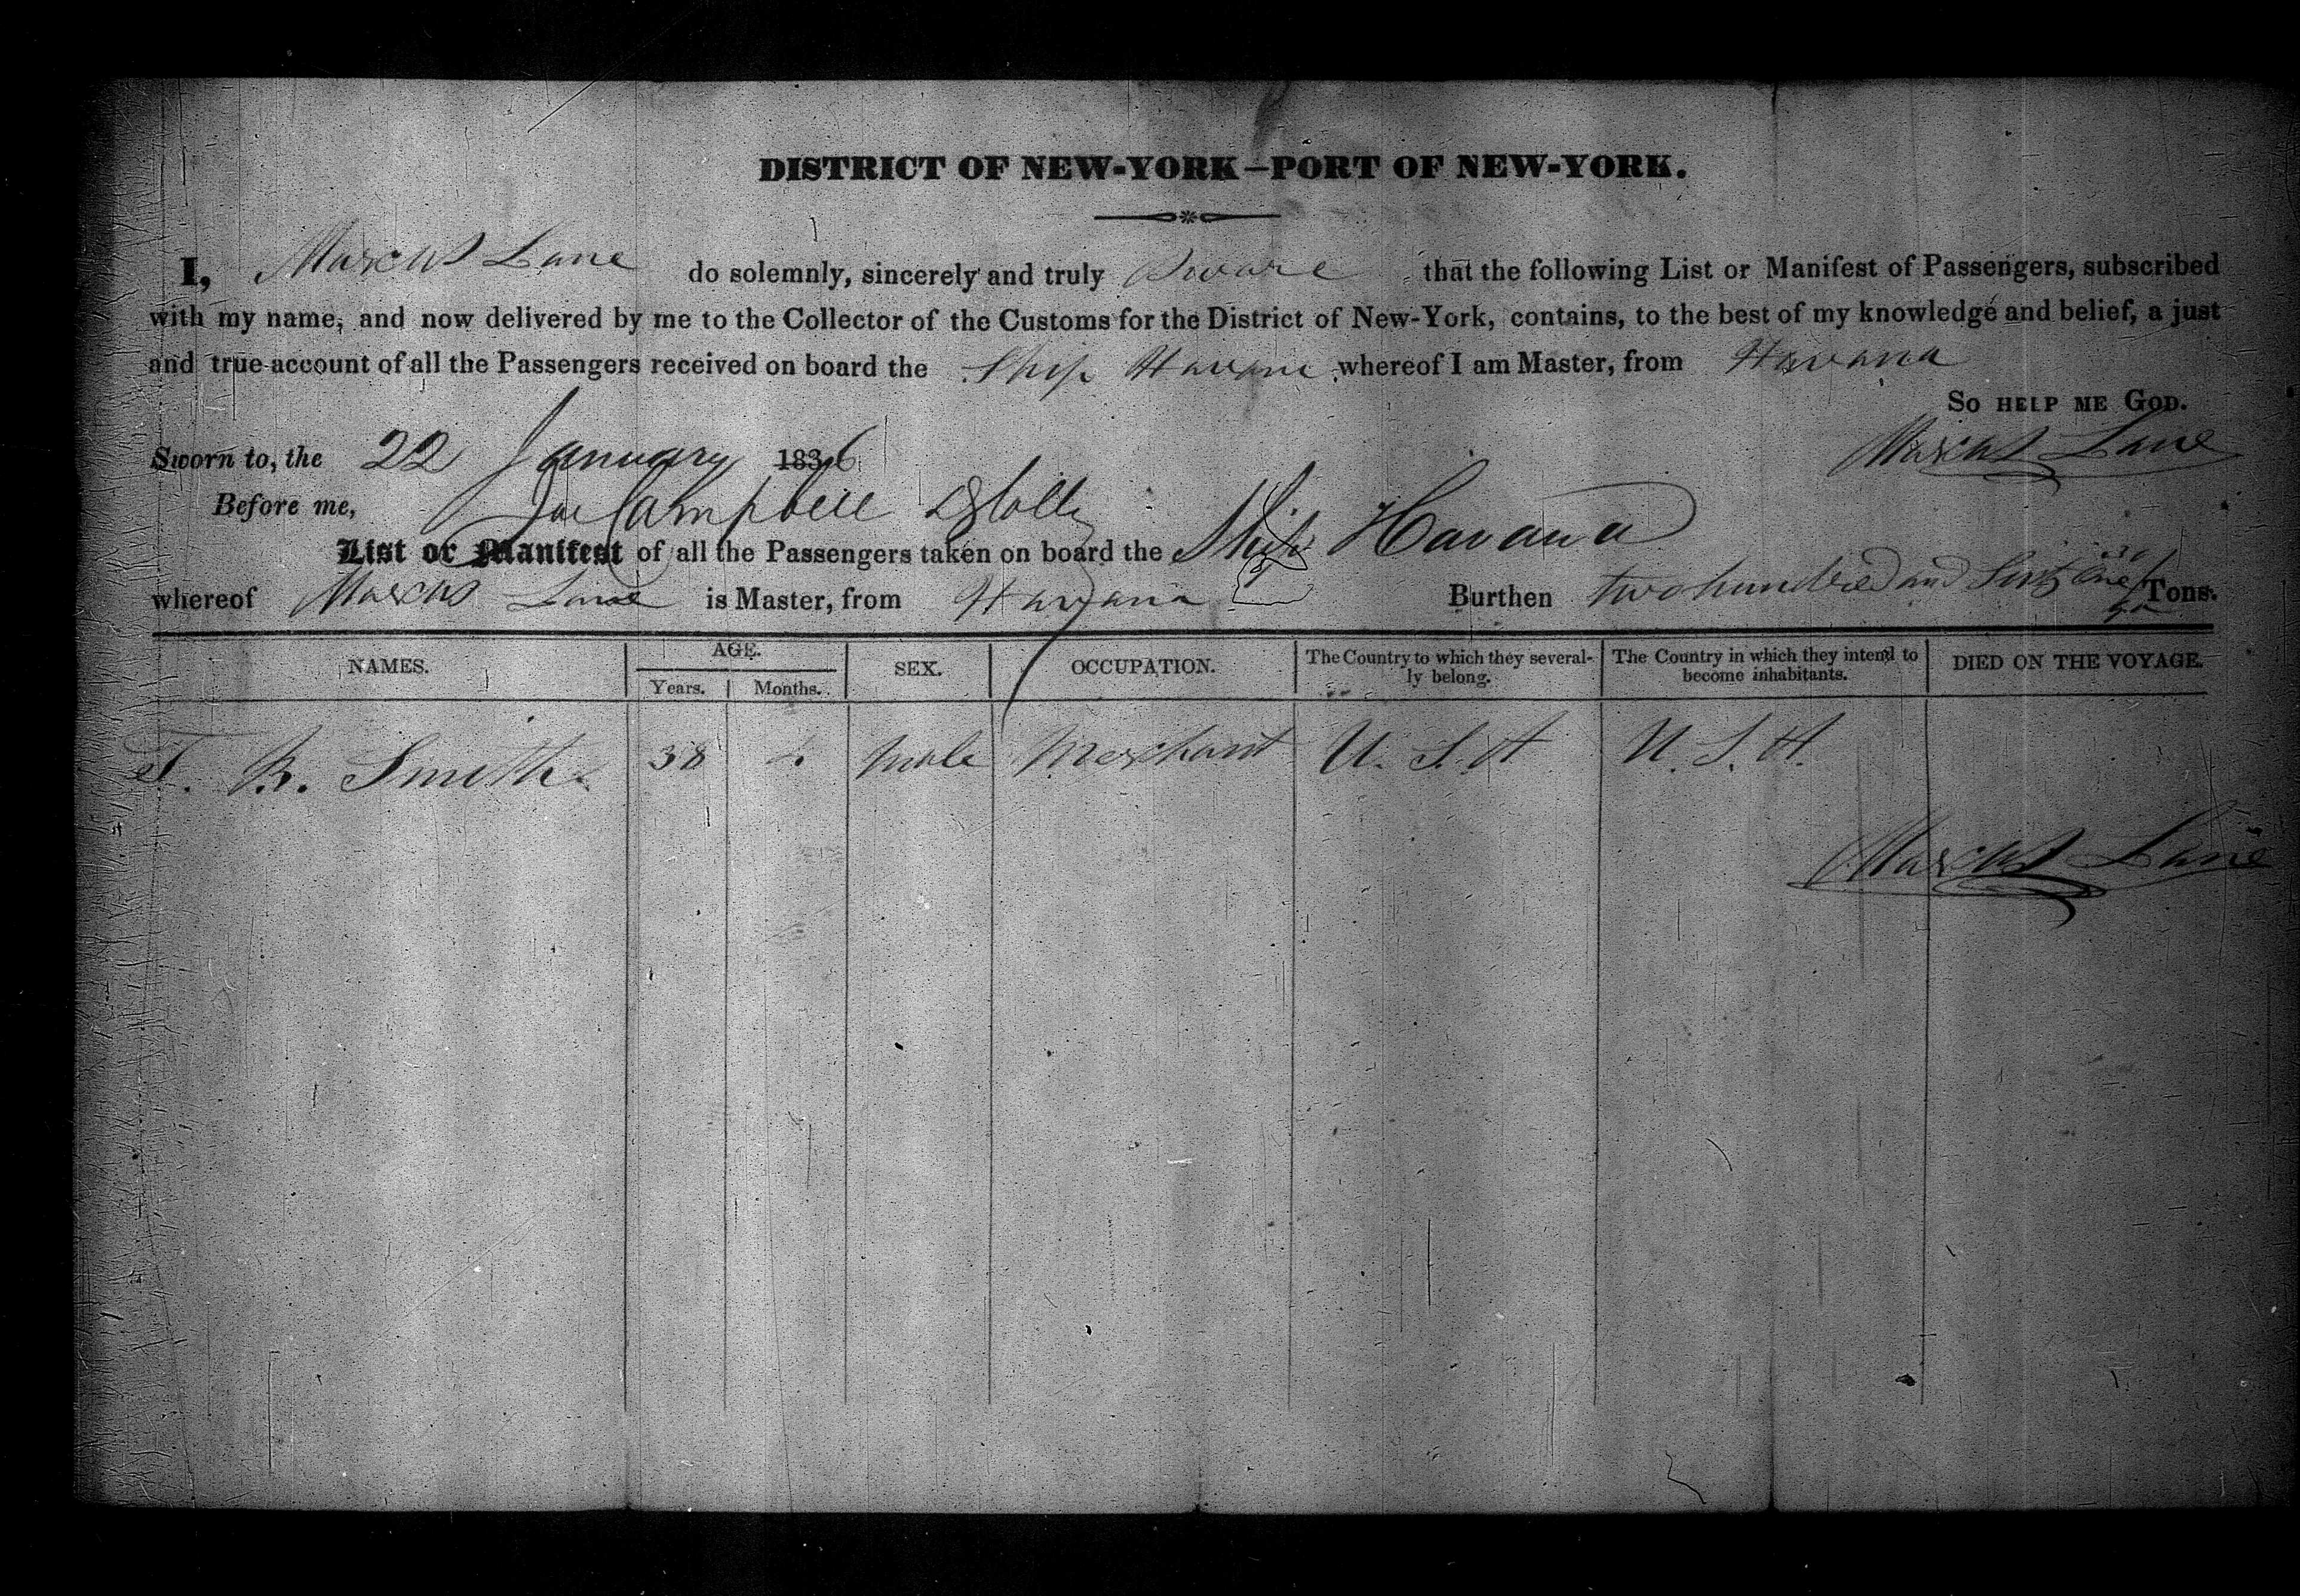 DISTRICT OF NEW-YORK—PORT OF NEW-YORK.
I, Marcus Lane do solemnly, sincerely and truly Sware that the following List or Manifest of Passengers, subscribed
with my name, and now delivered by me to the Collector of the Customs for the District of New-York, contains, to the best of my knowledge and belief, a just
and true account of all the Passengers received on board the Ship Havana whereof I am Master, from Havana
So HELP ME GOD.
Sworn to, the 22 January 1836 Marcus Lane
Before me, Campbell
List or Manifest of all the Passengers taken on board the Ship Havana
whereof Marcus Lane is Master, from Havana Burthen two hundred and Sixty One Tons.
NAMES. AGE. Years. Months. SEX. OCCUPATION. The Country to which they severally belong. The Country in which they intend to become inhabitants. DIED ON THE VOYAGE.
T. R. Smith 38 male Merchant U. S. A U. S. A.
Marcus Lane